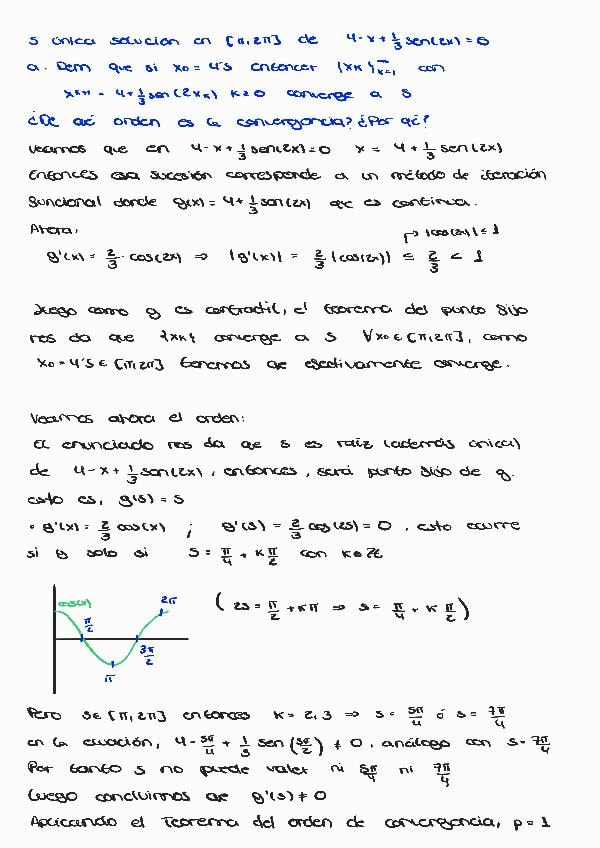 s única solución en [π, 2π] de 4-x+1/3 sen(2x)=0
a. Dem que si x0 = 4's entonces {xk}k=1 con
xk+1 = 4+1/3 sen(2xk) k≥0 converge a s
¿De qué orden es la convergencia? ¿Por qé?
Veamos que en 4-x+1/3 sen(2x)=0 x = 4+1/3 sen(2x)
Entonces esa sucesión corresponde a un método de iteración
funcional donde g(x) = 4+1/3 sen(2x) qe es continua.
Ahora, ↱ |cos(2x)| ≤ 1
g'(x) = 2/3 · cos(2x) ⇒ |g'(x)| = 2/3 |cos(2x)| ≤ 2/3 < 1
Luego como g es contráctil, el teorema del punto fijo
nos da que {xk} converge a s ∀x0 ∈ [π, 2π], como
x0 = 4's ∈ [π, 2π] tenemos qe efectivamente converge.
Veamos ahora el orden:
El enunciado nos da que s es raíz (además única)
de 4-x+1/3 sen(2x), entonces, será punto fijo de g.
esto es, g(s) = s
• g'(x) = 2/3 cos(x) ; g'(s) = 2/3 cos(2s) = 0, esto ocurre
si y solo si s = π/4 + k π/2 con k∈ℤ
cos(x) π/2 π 3π/2 2π
( 2s = π/2 + kπ ⇒ s = π/4 + k π/2 )
Pero s∈[π, 2π] entonces k = 2, 3 ⇒ s = 5π/4 ó s = 7π/4
en la ecuación, 4 - 5π/4 + 1/3 sen(5π/2) ≠ 0, análogo con s = 7π/4
Por tanto s no puede valer ni 5π/4 ni 7π/4
Luego concluimos qe g'(s) ≠ 0
Aplicando el Teorema del orden de convergencia, p = 1